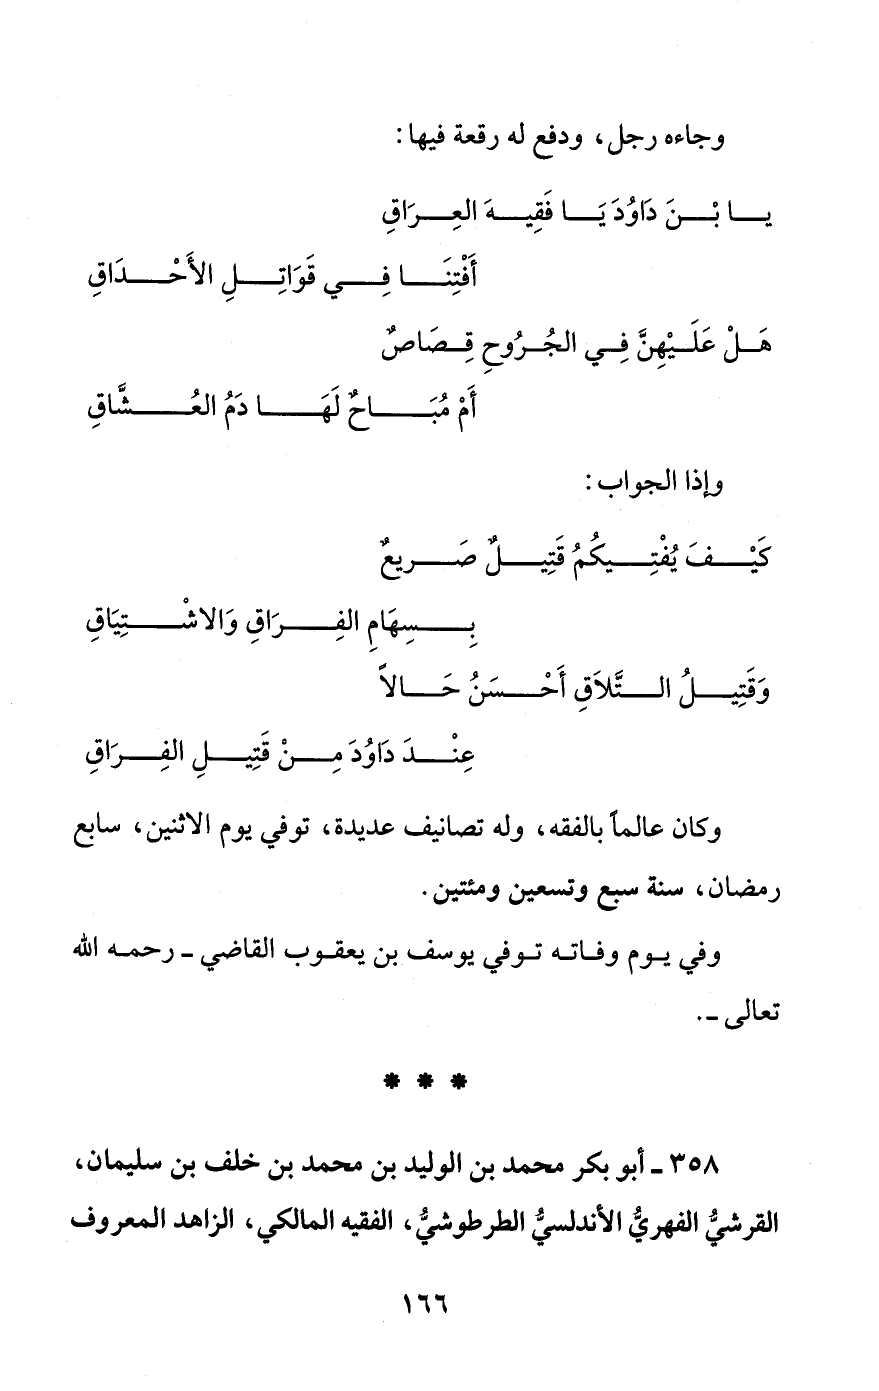 وجاءه رجل، ودفع له رقعة فيها:
يـا بْـنَ دَاوُدَ يَـا فَقِيـهَ العِـرَاقِ
أَفْتِنَـا فِـي قَوَاتِـلِ الأَحْـدَاقِ
هَـلْ عَلَـيْهِنَّ فِـي الجُـرُوحِ قِـصَاصٌ
أَمْ مُبَـاحٌ لَهَـا دَمُ العُـشَّاقِ
وإذا الجواب:
كَيْـفَ يُفْتِـيكُمُ قَتِيـلٌ صَـرِيعٌ
بِـسِهَامِ الفِـرَاقِ وَالاشْـتِيَاقِ
وَقَتِيـلُ الـتَّلاَقِ أَحْـسَنُ حَـالاً
عِنْـدَ دَاوُدَ مِـنْ قَتِيـلِ الفِـرَاقِ
وكان عالماً بالفقه، وله تصانيف عديدة، توفي يوم الاثنين، سابع
رمضان، سنة سبع وتسعين ومئتين.
وفي يـوم وفـاتـه تـوفي يوسف بن يعقـوب القاضي ـ رحمـه الله
تعالى ـ.
* * *
٣٥٨ ـ أبو بكر محمد بن الوليد بن محمد بن خلف بن سليمان،
القرشيُّ الفهريُّ الأندلسيُّ الطرطوشيُّ، الفقيه المالكي، الزاهد المعروف
١٦٦